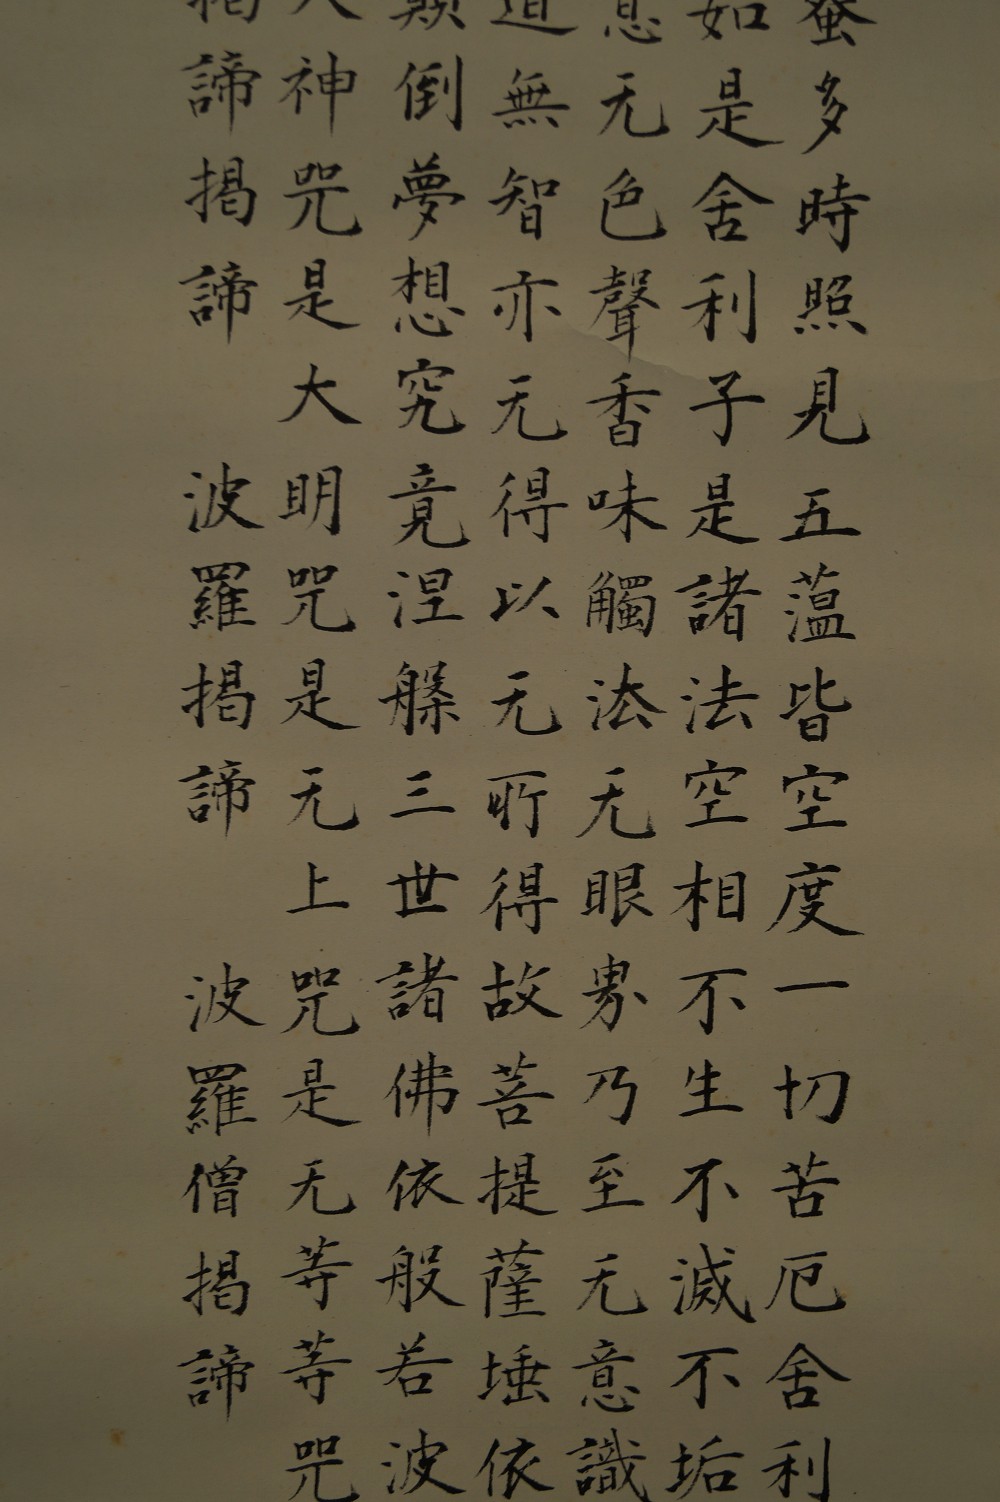 多時照見五蕰皆空度一切苦厄舍利
如是舍利子是諸法空相不生不滅不垢
息无色聲香味觸法无眼界乃至无意識
道無智亦无得以无所得故菩提薩埵依
顛倒夢想究竟涅槃三世諸佛依般若波
大神咒是大明咒是无上咒是无等等咒
揭諦揭諦 波羅揭諦 波羅僧揭諦